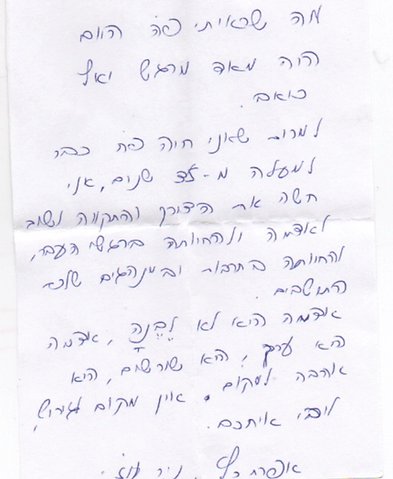 מה שראיתי פה היום
היה מאד מרגש ואף
כואב.
למרות שאני חיה פה כבר
למעלה מ- שנים, אני
חשה את הצורך והתקווה לשוב
לאדמה ולחיותה ברגשי העבר,
להחיותה בתרבות ובמנהגים שלכם
התושבים.
אדמה היא לא לְבֵנָה, אדמה
היא ערך, היא שורשים, היא
אהבה למקום. אין מקום לגירוש,
ליבי איתכם.
ניר עוז.